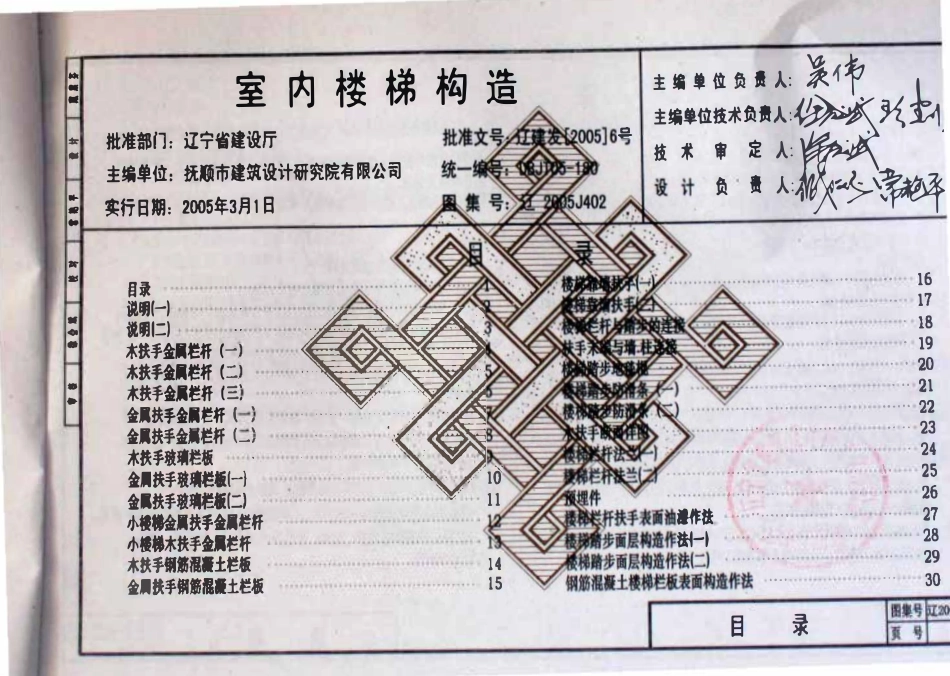 室内楼梯构造
批准部门: 辽宁省建设厅
主编单位: 抚顺市建筑设计研究院有限公司
实行日期: 2005年3月1日
批准文号: 辽建发[2005]6号
统一编号: DBJT05-180
图 集 号: 辽 2005J402
主编单位负责人: 吴伟
主编单位技术负责人:
技 术 审 定 人:
设 计 负 责 人:
目 录
目录 1
说明(一) 2
说明(二) 3
木扶手金属栏杆 (一) 4
木扶手金属栏杆 (二) 5
木扶手金属栏杆 (三) 6
金属扶手金属栏杆 (一) 7
金属扶手金属栏杆 (二) 8
木扶手玻璃栏板 9
金属扶手玻璃栏板(一) 10
金属扶手玻璃栏板(二) 11
小楼梯金属扶手金属栏杆 12
小楼梯木扶手金属栏杆 13
木扶手钢筋混凝土栏板 14
金属扶手钢筋混凝土栏板 15
楼梯靠墙扶手(一) 16
楼梯靠墙扶手(二) 17
楼梯栏杆与踏步的连接 18
扶手末端与墙.柱连接 19
楼梯踏步地毯棍 20
楼梯踏步防滑条 (一) 21
楼梯踏步防滑条 (二) 22
木扶手断面详图 23
楼梯栏杆法兰(一) 24
楼梯栏杆法兰(二) 25
预埋件 26
楼梯栏杆扶手表面油漆作法 27
楼梯踏步面层构造作法(一) 28
楼梯踏步面层构造作法(二) 29
钢筋混凝土楼梯栏板表面构造作法 30
目 录
图集号 辽20
页 号